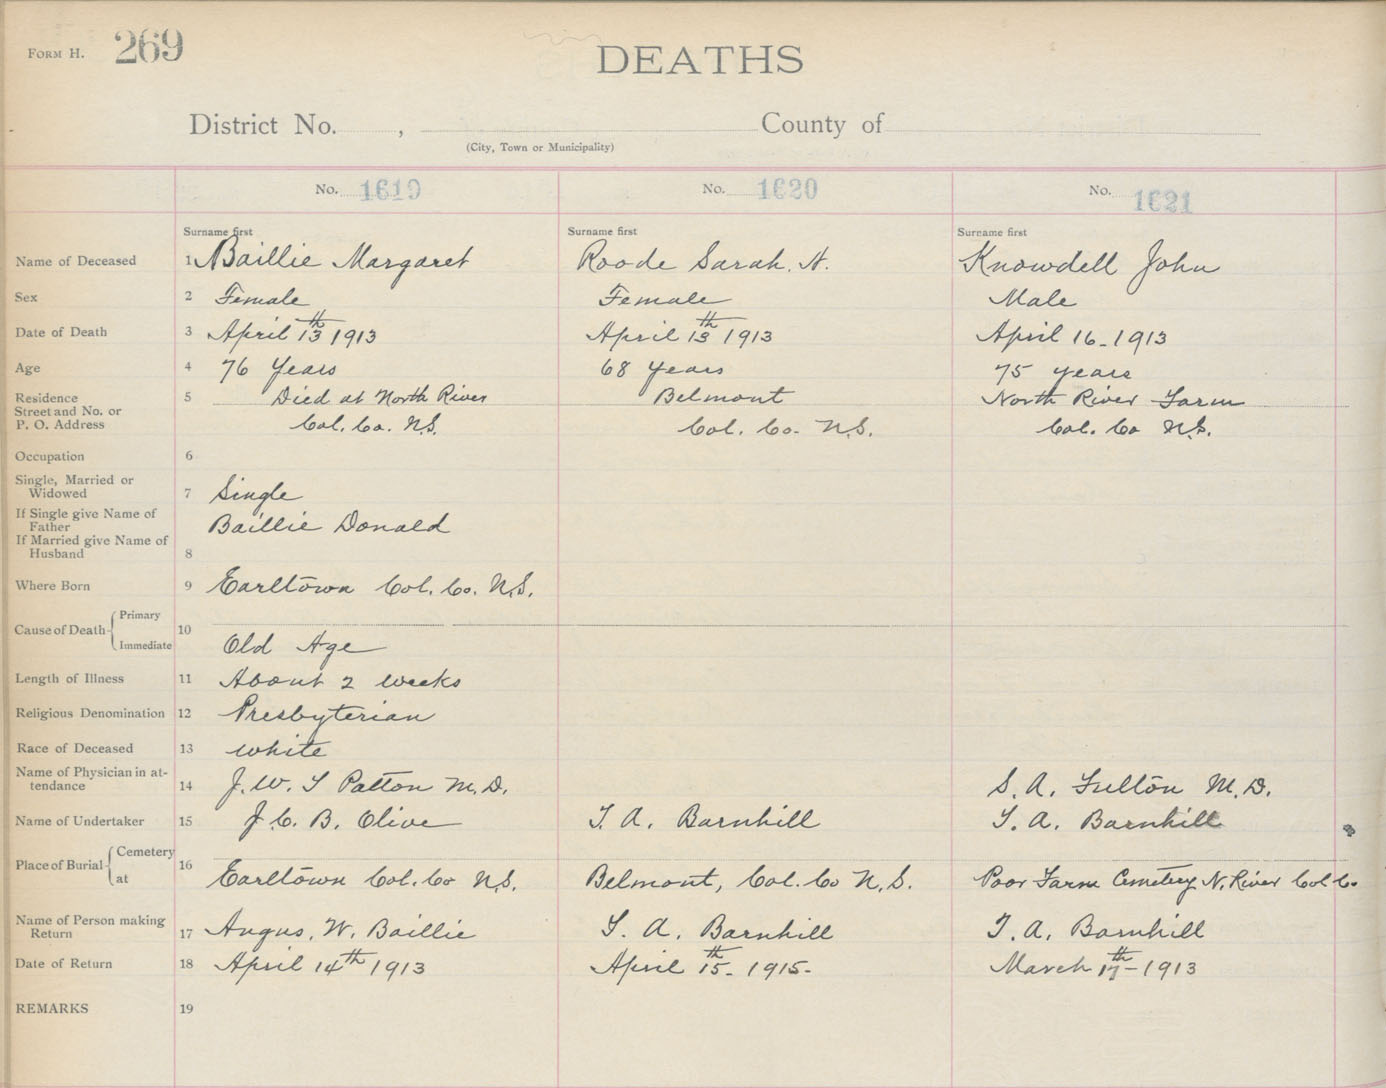 FORM H. 269
DEATHS
District No. , County of
(City, Town or Municipality)
No. 1619 No. 1620 No. 1621
Surname first Surname first Surname first
Name of Deceased 1 Baillie Margaret Roode Sarah. A. Knowdell John
Sex 2 Female Female Male
Date of Death 3 April 13th 1913 April 13th 1913 April 16-1913
Age 4 76 Years 68 years 75 years
Residence 5 Died at North River Belmont North River Farm
Street and No. or
P. O. Address Col. Co. N.S. Col. Co. N.S. Col. Co N.S.
Occupation 6
Single, Married or
Widowed 7 Single
If Single give Name of
Father Baillie Donald
If Married give Name of
Husband 8
Where Born 9 Earltown Col. Co. N.S.
Cause of Death Primary 10
Immediate Old Age
Length of Illness 11 About 2 weeks
Religious Denomination 12 Presbyterian
Race of Deceased 13 white
Name of Physician in at-
tendance 14 J. W. T Patton M.D. S. A. Fulton M.D.
Name of Undertaker 15 J. C. B. Olive T. A. Barnhill T. A. Barnhill
Place of Burial Cemetery 16
at Earltown Col. Co N.S. Belmont, Col. Co N.S. Poor Farm Cemetery N. River Col Co.
Name of Person making
Return 17 Angus. W. Baillie T. A. Barnhill T. A. Barnhill
Date of Return 18 April 14th 1913 April 15th- 1915- March 17th-1913
REMARKS 19